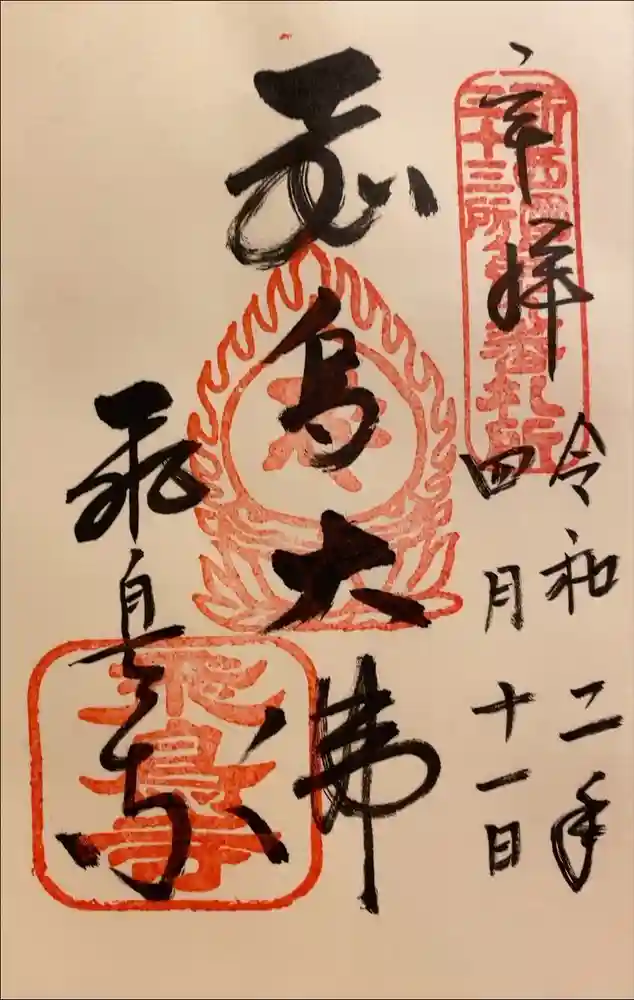 奉拝
新西国
三十三所
番札所
令和二年
四月十一日
飛鳥大佛
飛鳥寺
飛鳥寺